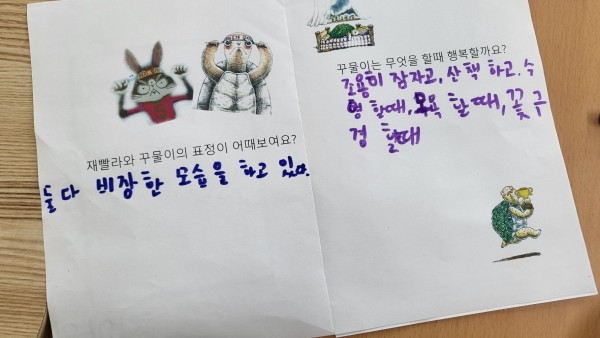 재빨라와 꾸물이의 표정이 어때보여요?
둘 다 비장한 모습을 하고 있다.
꾸물이는 무엇을 할때 행복할까요?
조용히 잠자고, 산책 하고, 수
영 할때, 목욕 할 때, 꽃 구
경 할때